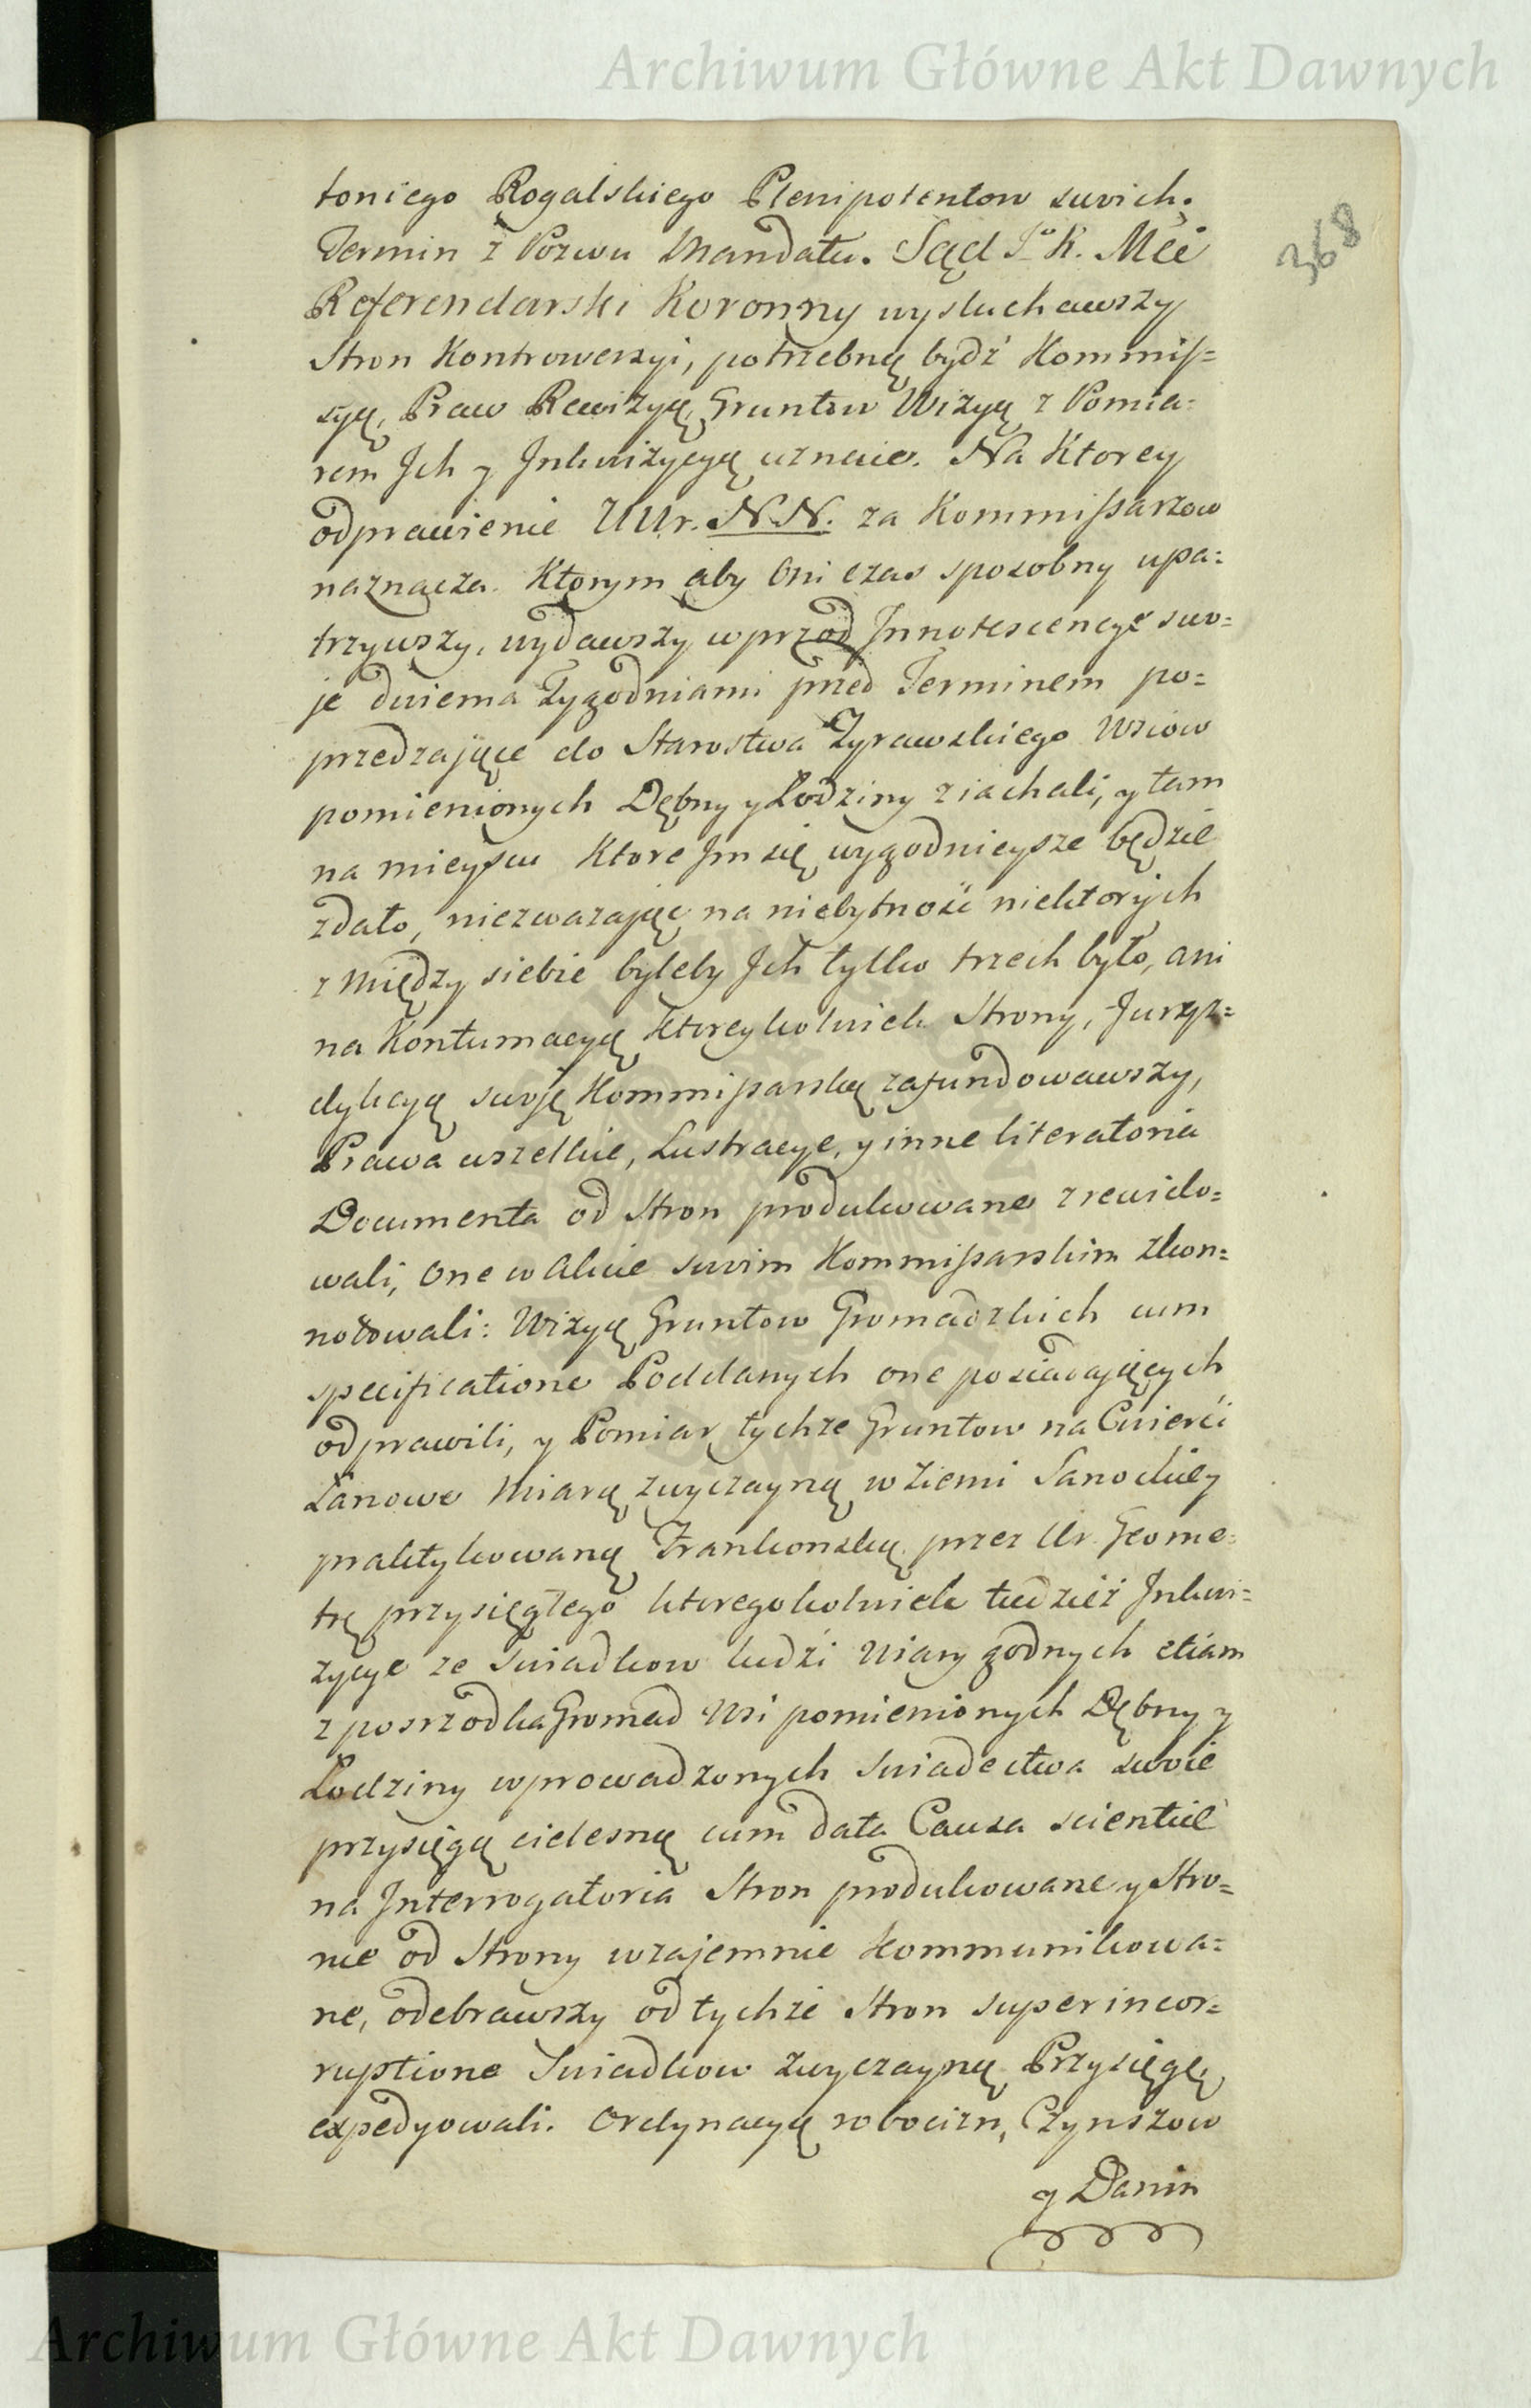 Archiwum Główne Akt Dawnych
368
toniego Rogalskiego Plenipotentow swich.
Termin z Pozwu Mandatu. Sąd Jo K. Mći
Referendarski Koronny wysłuchawszy
Stron Kontrowersyi, potrzebną bydź Kommis=
syą, Praw Rewizyą, Gruntow Wizyą z Pomia=
rem Ich y Inkwizycyą uznaie. Na Ktorey
odprawienie UUr. N.N. za Kommissarzow
naznacza. Ktorym aby Oni czas sposobny upa=
trzywszy, wydawszy wprzod Innotescencye swo=
je dwiema Tygodniami przed Terminem po=
przedzające do Starostwa Tyrawskiego Wsiow
pomienionych Dębny y Łodziny ziachali, y tam
na mieyscu Ktore Im się wygodnieysze będzie
zdało, niezwazając na niebytność niektorych
z między siebie byleby Ich tylko trzech było, ani
na Kontumacyą ktoreykolwiek Strony, Juryz=
dykcyą swoję Kommissarską zafundowawszy,
Prawa wszelkie, Lustracye, y inne literatoria
Documenta od Stron produkowane zrewido=
wali, One w Akcie swim Kommissarskim zkon=
notowali: Wizyą Gruntow Gromadzkich cum
specificatione Poddanych one posiadających
odprawili, y Pomiar tychze Gruntow na Cwierci
Łanowe Miarą zwyczayną w Ziemi Sanockiey
praktykowaną Frankonską przez Ur. Geome=
trę przysięgłego ktoregokolwiek tudzież Inkwi=
zycye ze Swiadkow ludzi Wiary godnych etiam
z posrzodka Gromad Wsi pomienionych Dębny y
Łodziny wprowadzonych swiadectwa swoie
przysięgą cielesną cum data Causa scientiæ
na Interrogatoria Stron produkowane y Stro=
nie od Strony wzajemnie Kommunikowa=
ne, odebrawszy od tychże Stron super incor=
ruptione Swiadkow zwyczayną Przysięgę
expedyowali. Ordynacyą robocizn, Czynszow
y Danin
Archiwum Główne Akt Dawnych